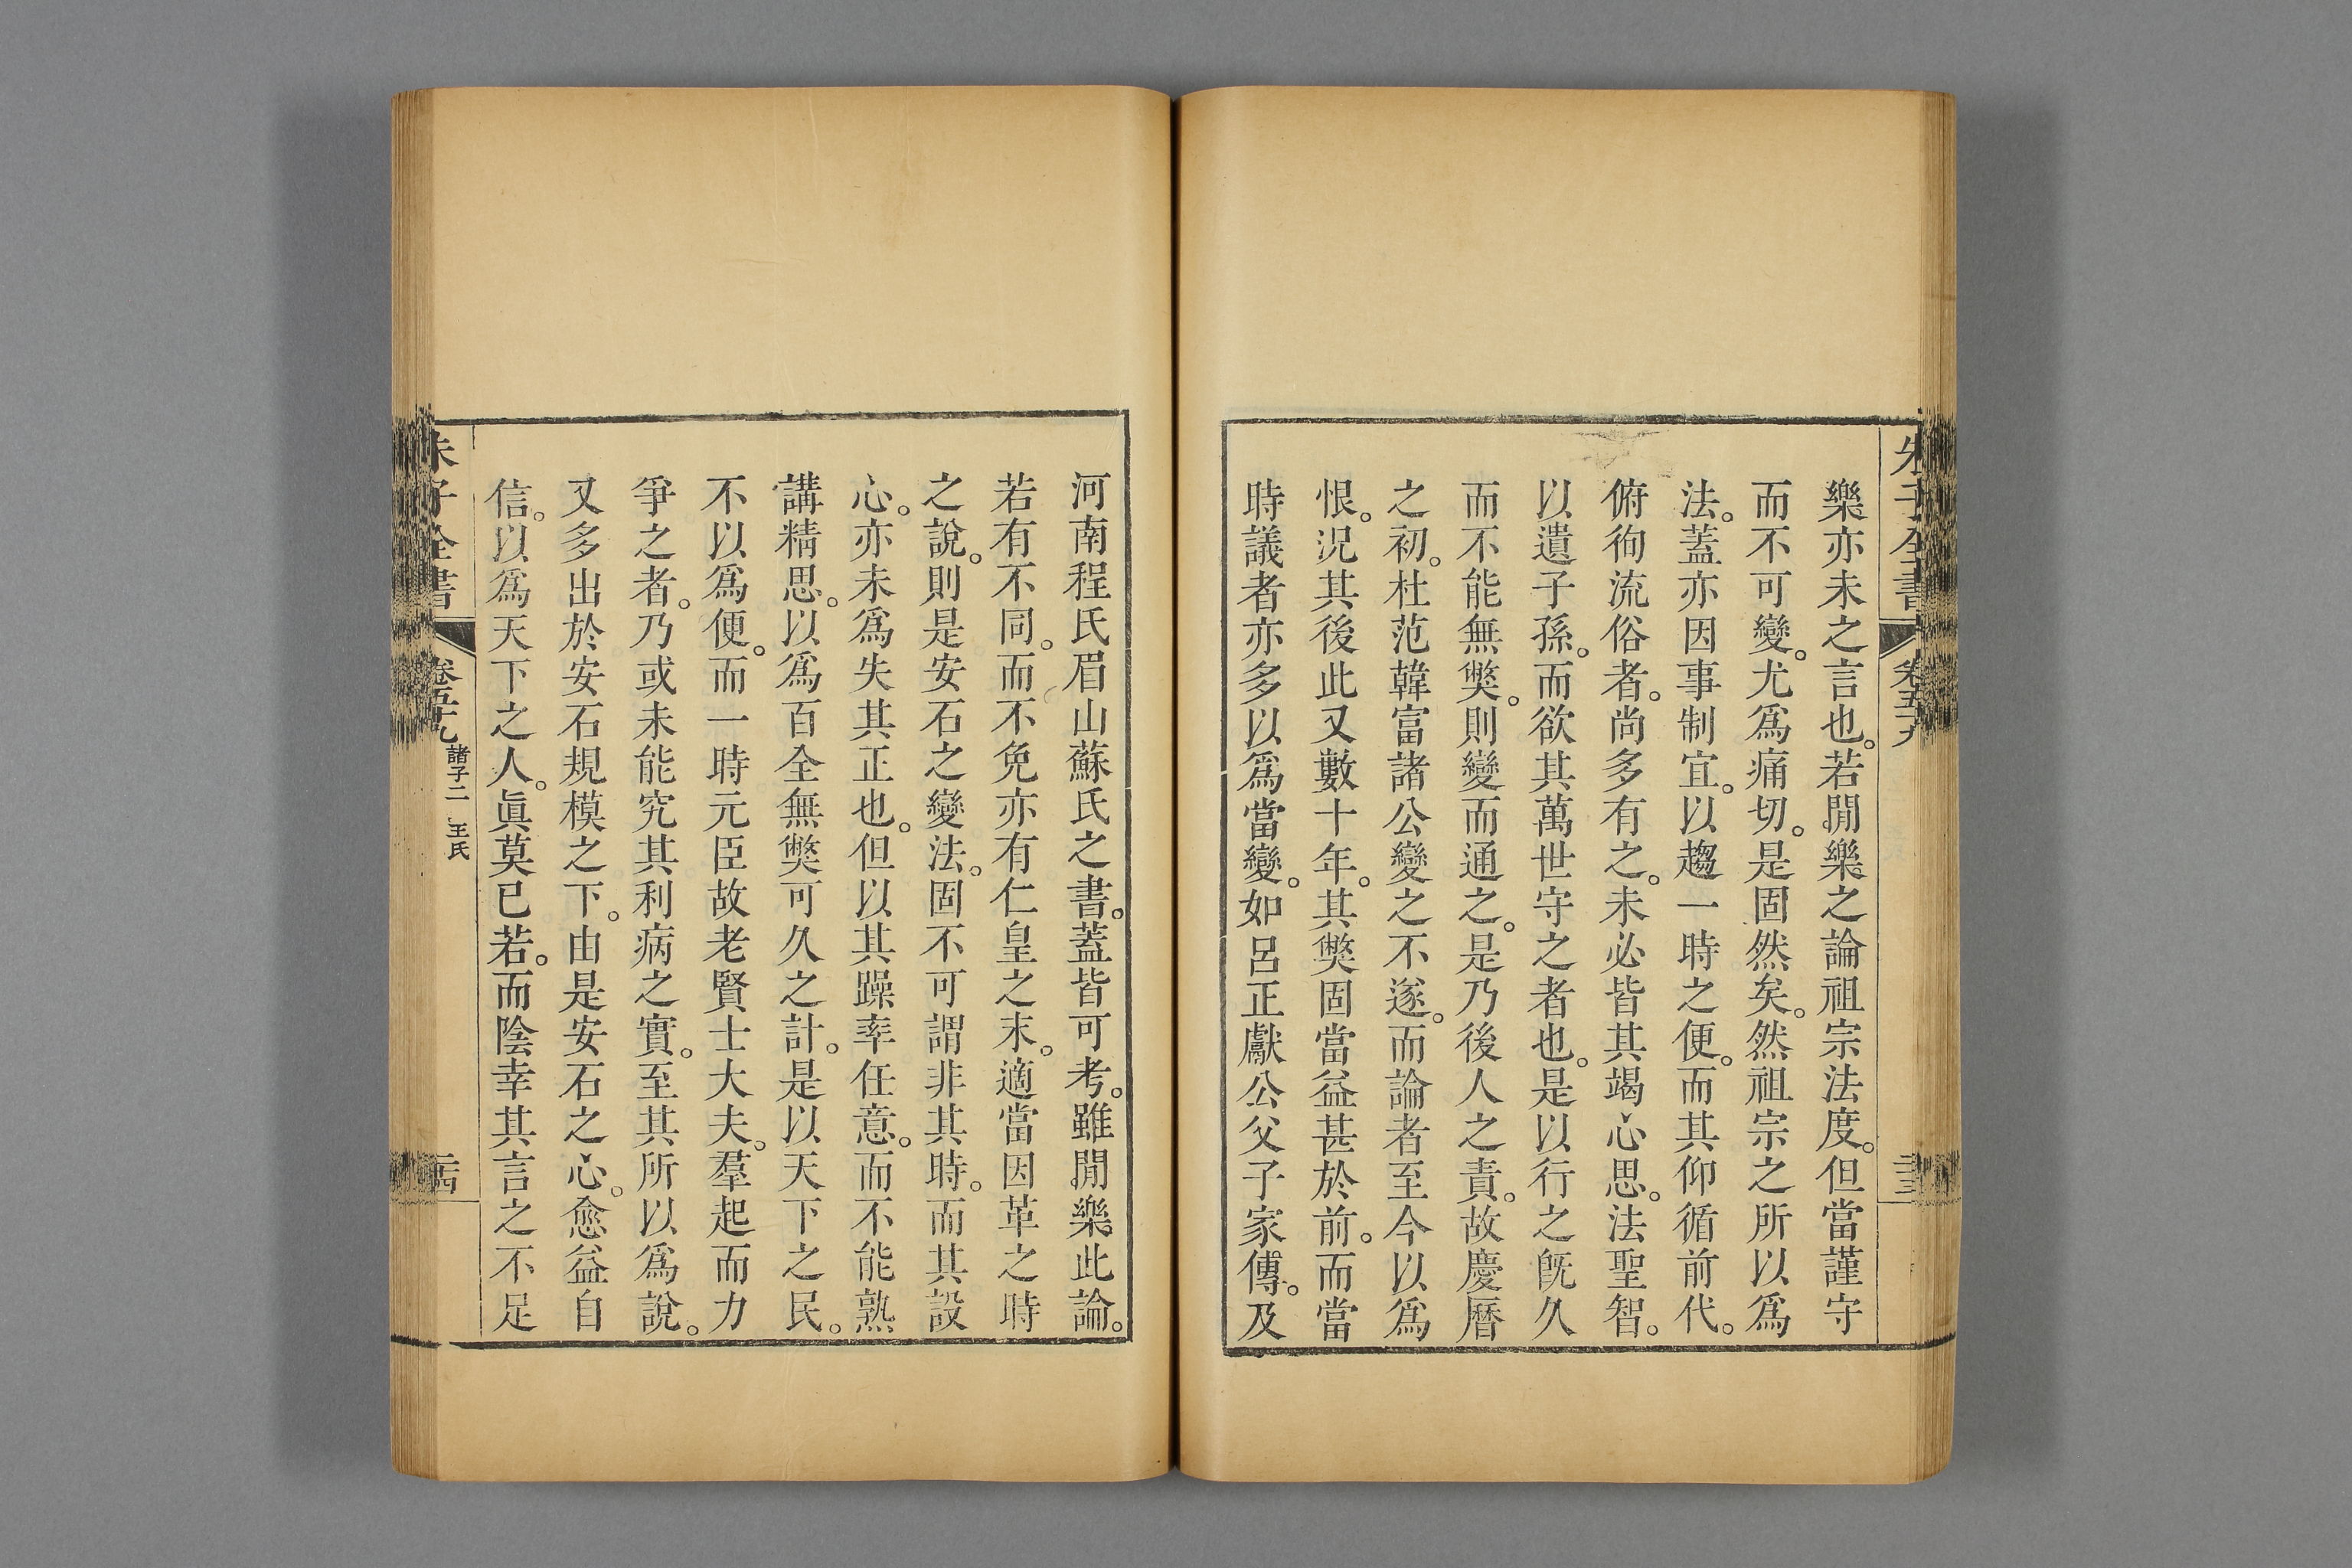 朱子全書 卷五十九 三十三
樂亦未之言也。若閒樂之論祖宗法度。但當謹守
而不可變。尤爲痛切。是固然矣。然祖宗之所以爲
法。蓋亦因事制宜。以趨一時之便。而其仰循前代。
俯徇流俗者。尚多有之。未必皆其竭心思。法聖智。
以遺子孫。而欲其萬世守之者也。是以行之旣久
而不能無獘。則變而通之。是乃後人之責。故慶曆
之初。杜范韓富諸公變之不遂。而論者至今以爲
恨。況其後此又數十年。其獘固當益甚於前。而當
時議者亦多以爲當變。如呂正獻公父子家傳。及
河南程氏眉山蘇氏之書。蓋皆可考。雖閒樂此論。
若有不同。而不免亦有仁皇之末。適當因革之時
之說。則是安石之變法。固不可謂非其時。而其設
心。亦未爲失其正也。但以其躁率任意。而不能熟
講精思。以爲百全無獘可久之計。是以天下之民。
不以爲便。而一時元臣故老賢士大夫。羣起而力
爭之者。乃或未能究其利病之實。至其所以爲說。
又多出於安石規模之下。由是安石之心。愈益自
信。以爲天下之人。眞莫已若。而陰幸其言之不足
朱子全書 卷五十九 諸子二 王氏 二十四